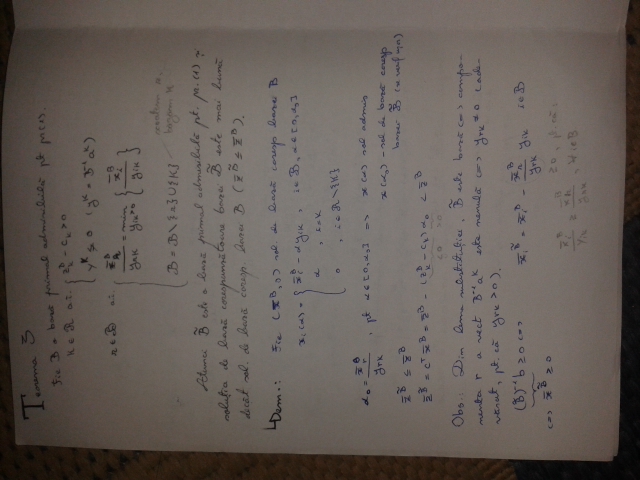 Teorema 3
Fie B = bază primal admisibilă pt. pr. (1).
k ∈ R a.î. { z_k^B - c_k > 0
y^k ≰ 0 (y^k = B^{-1} a^k)
r ∈ B a.î. { x̄_r^B / y_rk = min_{y_ik > 0} { x̄_i^B / y_ik }
B̃ = B \ {r} ∪ {k}
Atunci B̃ este o bază primal admisibilă pt. pr. (1) și
soluția de bază corespunzătoare bazei B̃ este mai bună
decât sol. de bază coresp. bazei B (z̄^B̃ ≤ z̄^B).
Dem.: Fie (x̄^B, 0) sol de bază coresp bazei B
x_i(α) = { x̄_i^B - α y_ik, i ∈ B, α ∈ [0, α_0]
α, i = k
0, i ∈ R \ {k}
α_0 = x̄_r^B / y_rk, pt α ∈ [0, α_0] => x(α) sol admis
x(α_0) - sol de bază coresp
bazei B̃
z̄^B̃ ≤ z̄^B
z̄^B̃ = c^T x̄^B̃ = z̄^B - (z_k^B - c_k) α_0 < z̄^B
Obs.: Din lema substituției, B̃ este bază <=> compo-
nenta r a vect B^{-1} a^k este nenulă <=> y_rk ≠ 0 (ade-
vărat, pt. că y_rk > 0).
(B̃)^{-1} b ≥ 0 <=>
x̄_i^B̃ = x̄_i^B - x̄_r^B / y_rk y_ik, i ∈ B
<=> x̄^B̃ ≥ 0
≥ 0, pt. că
x̄_i^B / y_ik ≥ x̄_r^B / y_rk, ∀ i ∈ B